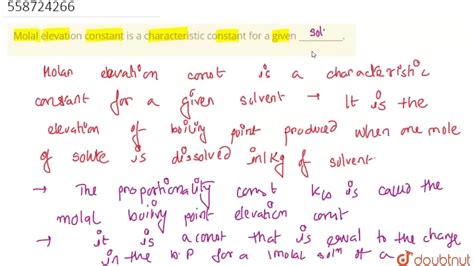 558724266
Molal elevation constant is a characteristic constant for a given sol.
Molan elevation const is a characteristic
constant for a given solvent → It is the
elevation of boiling point produced when one mole
of solute is dissolved in 1 Kg of solvent
→ The proportionality const Kb is called the
molal boiling point elevation const
→ it is a const that is equal to the change
in the B.P for a 1 molal solⁿ of a
doubtnut